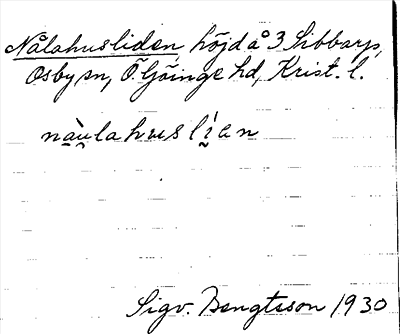 Nålahusliden höjd å 3 Sibbarp,
Osby sn, Ö. Göinge hd, Krist. l.
nàu̯lahus lí̯ən
Sigv. Bengtsson 1930